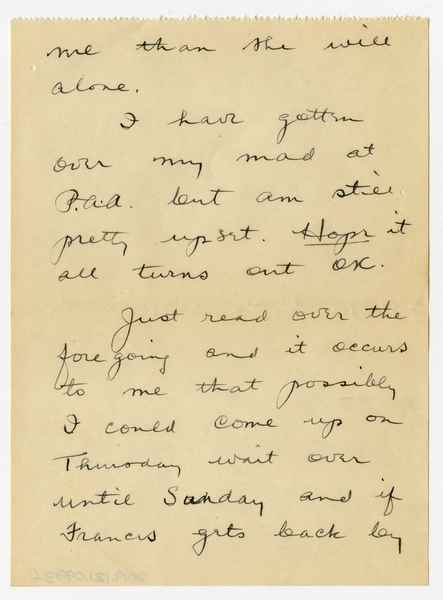 me than she will
alone.
I have gotten
over my mad at
P.a.a. but am still
pretty upset. Hope it
all turns out OK.
Just read over the
foregoing and it occurs
to me that possibly
I could come up on
Thursday wait over
until Sunday and if
Francis gets back by